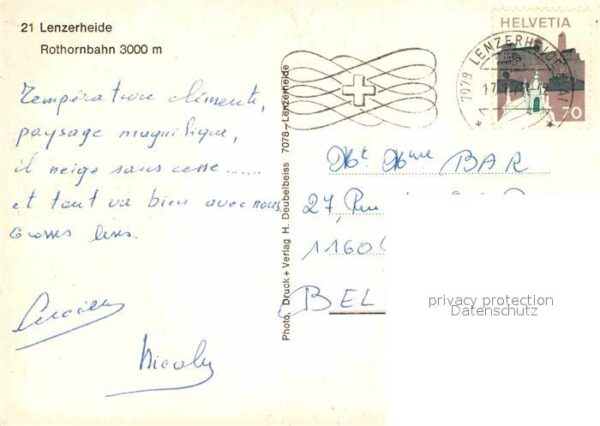 21 Lenzerheide
Rothornbahn 3000 m
Température clémente,
paysage magnifique,
il neige sans cesse ......
et tout va bien avec nous.
Grosses bises.
Lucien
Nicole
Photo, Druck + Verlag H. Deubelbeiss 7078-Lenzerheide
HELVETIA
70
7078 LENZERHEIDE
Mr Mme BAR
27, Rue
1160
BEL
privacy protection
Datenschutz